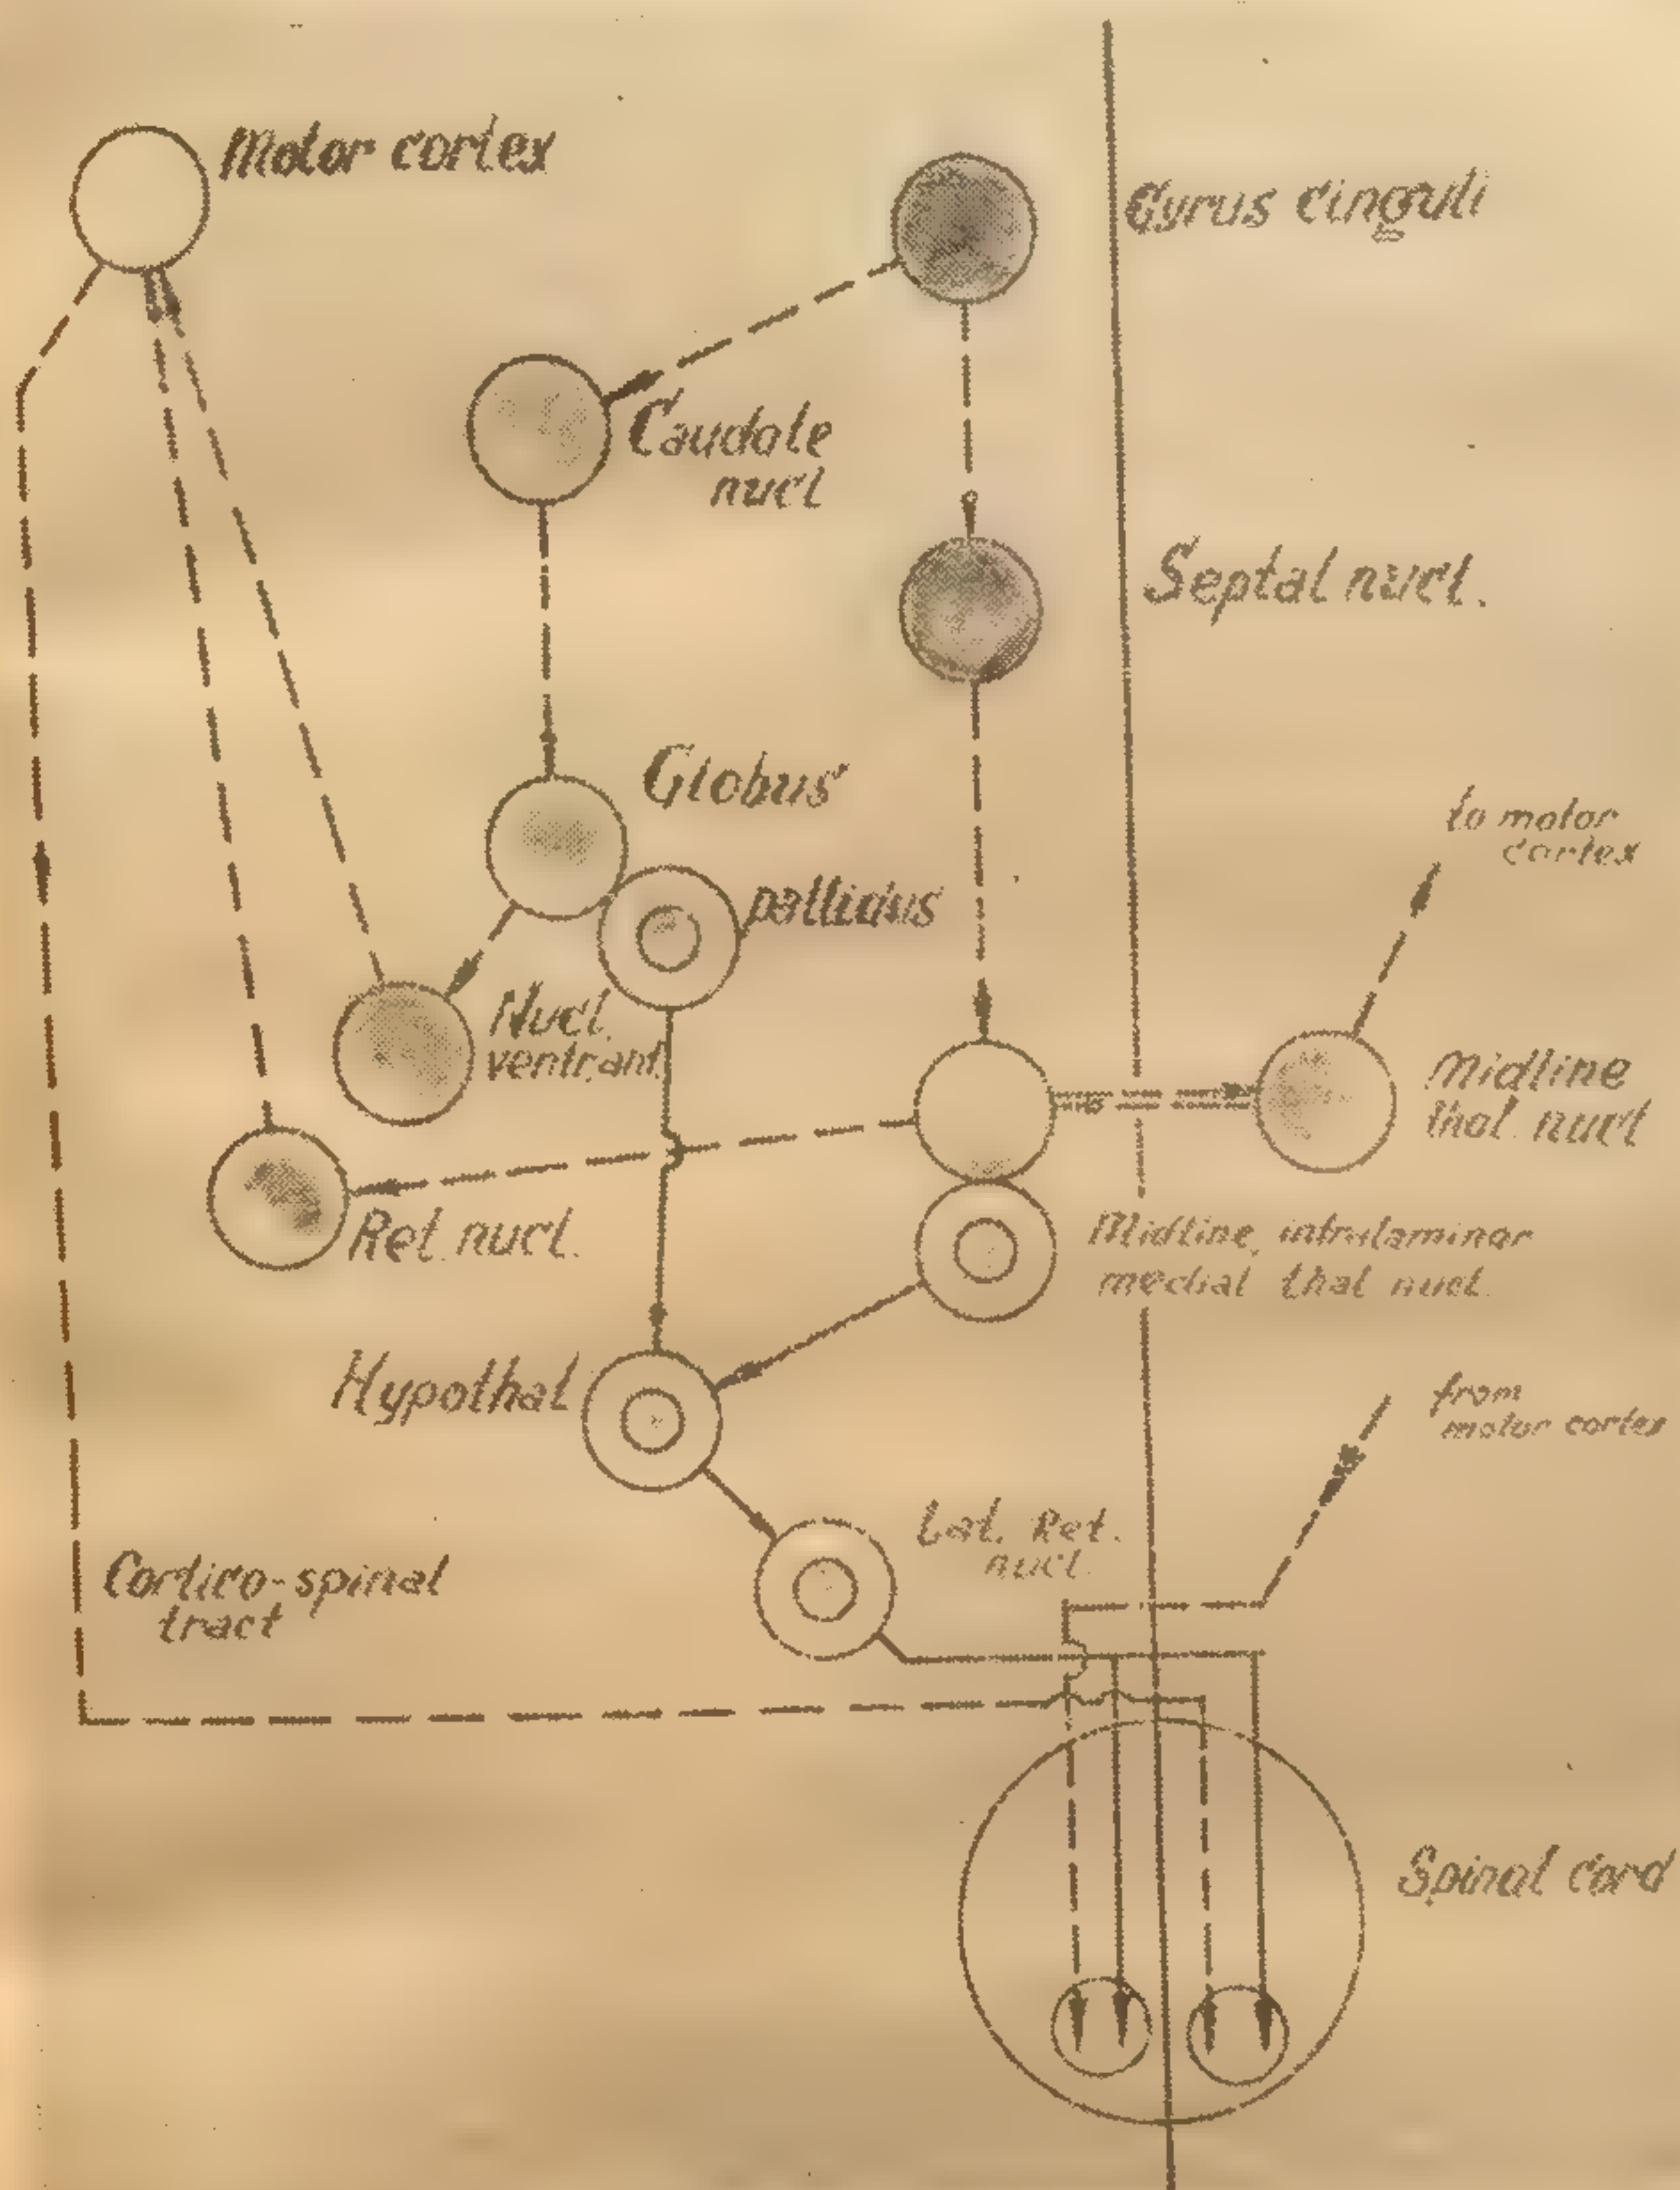 Motor cortex
Gyrus cinguli
Caudate
nucl
Septal nucl.
Globus
pallidus
to motor
cortex
Nucl.
ventr. ant.
Midline
thal. nucl
Ret. nucl.
Midline, intralaminar
medial thal nucl.
Hypothal
from
motor cortex
Lat. Ret.
nucl.
Cortico-spinal
tract
Spinal cord